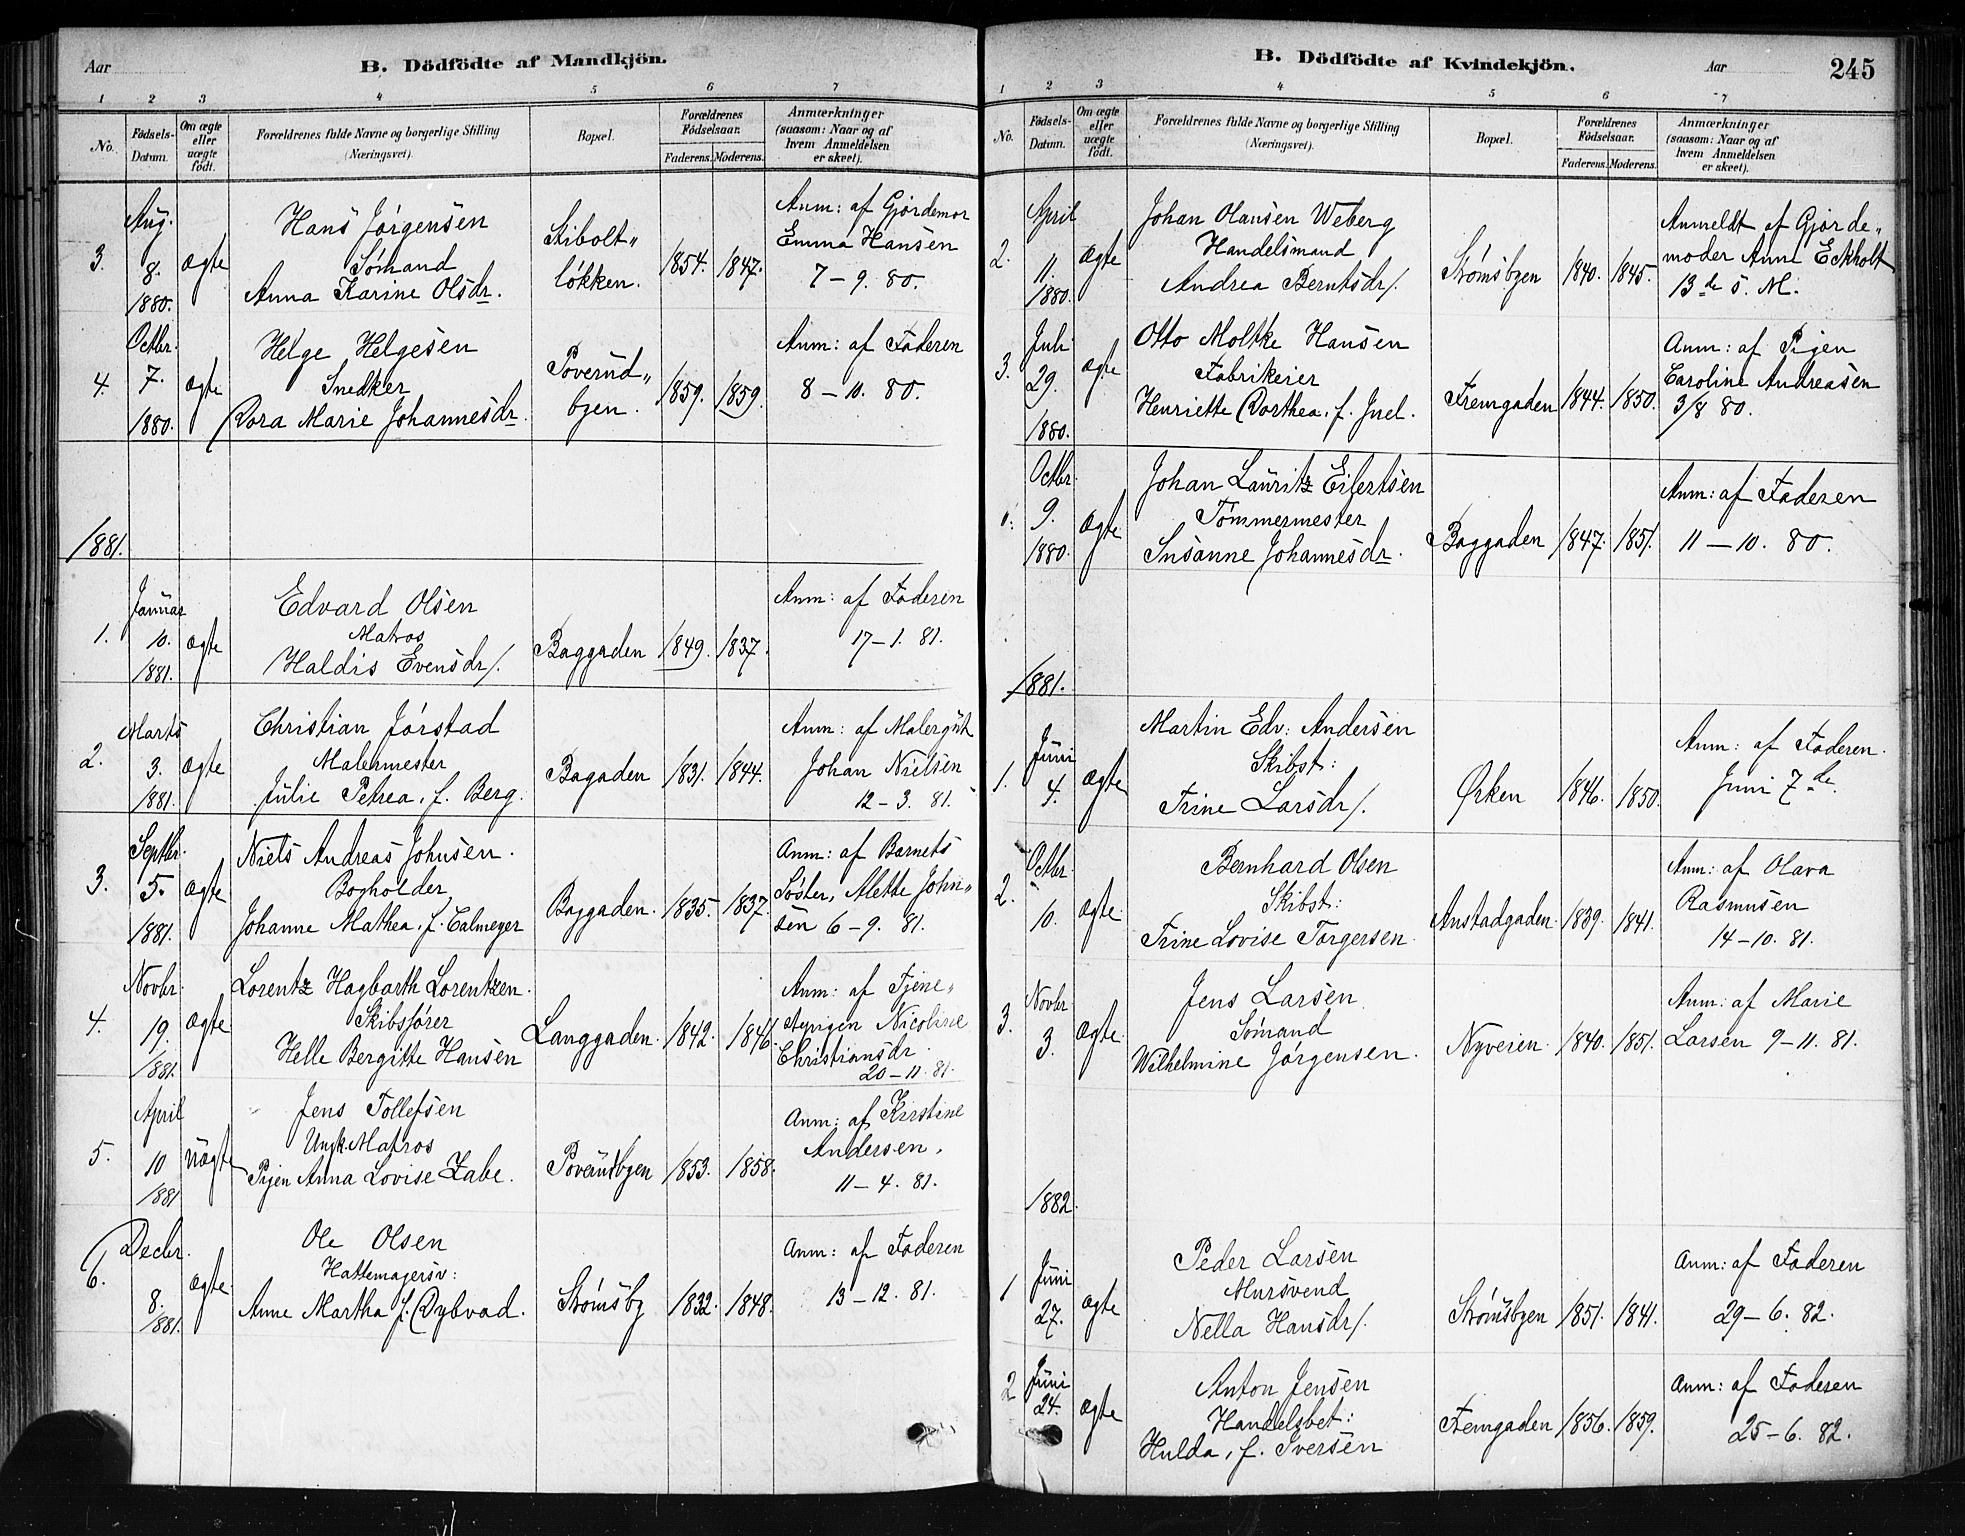 Aar
B. Dödfödte af Mandkjön.
1 2 3 4 5 6 7
No.
Födsels-
Datum.
Om ægte
eller
uægte
födt.
Forældrenes fulde Navne og borgerlige Stilling
(Næringsvei).
Bopæl.
Forældrenes
Födselsaar.
Faderens. Moderens.
Anmærkninger
(saasom: Naar og af
hvem Anmeldelsen
er skeet).
3. Aug. 8. 1880. ægte
Hans Jørgensen
Sømand
Anna Karine Olsdr.
Stibolt„
løkken.
1854. 1847.
Anm: af Gjordemor
Emma Hansen
7-9. 80.
4. Octbr. 7. 1880. ægte
Helge Helgesen
Snedker
Dora Marie Johannesdr.
Poverud„
byen.
1859. 1859.
Anm: af Faderen
8-10. 80.
1881.
1. Januar 10. 1881. ægte
Edvard Olsen
Matros
Haldis Evensdr/.
Baggaden
1849. 1837.
Anm: af Faderen
17-1. 81.
2. Marts 3. 1881. ægte
Christian Jørstad
Malermester
Julie Petrea, f. Berg.
Bagaden
1831. 1844.
Anm: af Malergut
Johan Nielsen
12-3. 81.
3. Septbr. 5. 1881. ægte
Niels Andreas Johnsen.
Bogholder
Johanne Mathea, f. Calmeyer
Baggaden.
1835. 1837.
Anm: af Barnets
Søster, Alette John„
sen 6-9. 81.
4. Novbr. 19. 1881. ægte
Lorentz Hagbarth Lorentzen.
Skibsfører
Helle Bergitte Hansen
Langgaden.
1842. 1846.
Anm: af Tjene„
stepigen Nicoline
Christiansdr.
20-11. 81.
5. April 10 1881 uægte
Jens Tollefsen
Ungk. Matros
Pigen Anna Lovise Zabe.
Poverudbyen
1853. 1858.
Anm: af Kirstine
Andersen.
11-4. 81.
6. Decbr. 8. 1881. ægte
Ole Olsen
Hattemagersv:
Anne Martha f. Dybvad.
Strømsby
1832. 1848.
Anm: af Faderen
13-12. 81.
B. Dödfödte af Kvindekjön.
Aar 245
1 2 3 4 5 6 7
No.
Födsels-
Datum.
Om ægte
eller
uægte
födt.
Forældrenes fulde Navne og borgerlige Stilling
(Næringsvei).
Bopæl.
Forældrenes
Födselsaar.
Faderens. Moderens.
Anmærkninger
(saasom: Naar og af
hvem Anmeldelsen
er skeet).
2. April 11. 1880. ægte
Johan Olausen Weberg
Handelsmand
Andrea Berntsdr/.
Strømsbyen
1840. 1845.
Anmeldt af Gjorde„
moder Anne Eckholt
13de s. M.
3. Juli 29. 1880. ægte
Otto Moltke Hansen
Fabrikeier
Henriette Dorthea, f. Juel.
Fremgaden
1844. 1850.
Anm: af Pigen
Caroline Andreasen
3/8 80.
Octbr. 9. 1880. ægte
Johan Lauritz Eilertsen
Tømmermester
Susanne Johannesdr.
Baggaden
1847. 1851.
Anm: af Faderen
11-10. 80.
1881.
1. Juni 4. ægte
Martin Edv: Andersen
Skibst:
Trine Larsdr/.
Ørken
1846. 1850.
Anm: af Faderen.
Juni 7de.
2. Octbr. 10. ægte
Bernhard Olsen
Skibst:
Trine Lovise Torgersen.
Anstadgaden.
1839. 1841.
Anm: af Olava
Rasmusen
14-10. 81.
3. Novbr 3. ægte
Jens Larsen
Sømand
Wilhelmine Jørgensen.
Nyveien.
1840. 1851.
Anm: af Marie
Larsen 9-11. 81.
1882.
1 Juni 27. ægte
Peder Larsen
Mursvend
Nella Hansdr/.
Strømsbyen
1851. 1841.
Anm: af Faderen
29-6. 82.
2 Juni 24. ægte
Anton Jensen
Handelsbet:
Hulda, f. Iversen
Fremgaden
1856. 1859.
Anm: af Faderen
25-6. 82.